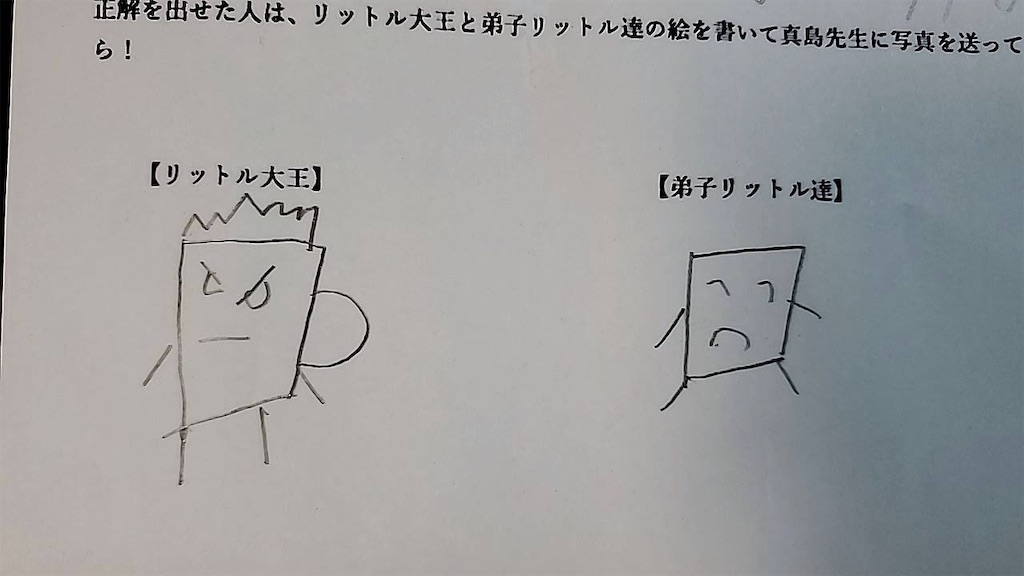 正解を出せた人は、リットル大王と弟子リットル達の絵を書いて真島先生に写真を送って
ら！
【リットル大王】
【弟子リットル達】